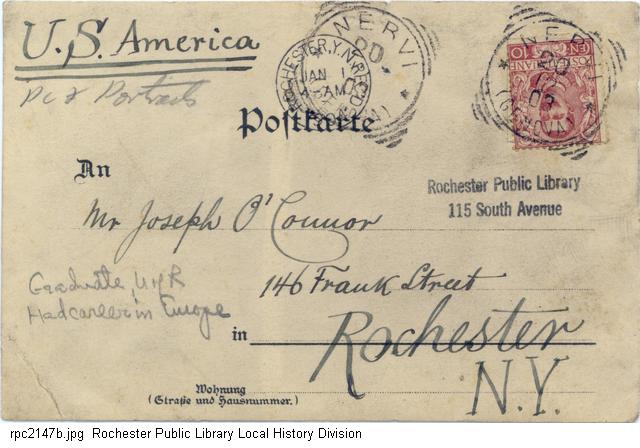 U.S. America
NERVI
ROCHESTER, N.Y.
JAN 1
NERVI
(GENOVA)
Pc 2 Portraits
Postkarte
An
Rochester Public Library
115 South Avenue
Mr Joseph O'Connor
146 Frank Street
Graduate U of R
Had career in Europe
in Rochester
N.Y.
Wohnung
(Straße und Hausnummer.)
rpc2147b.jpg Rochester Public Library Local History Division